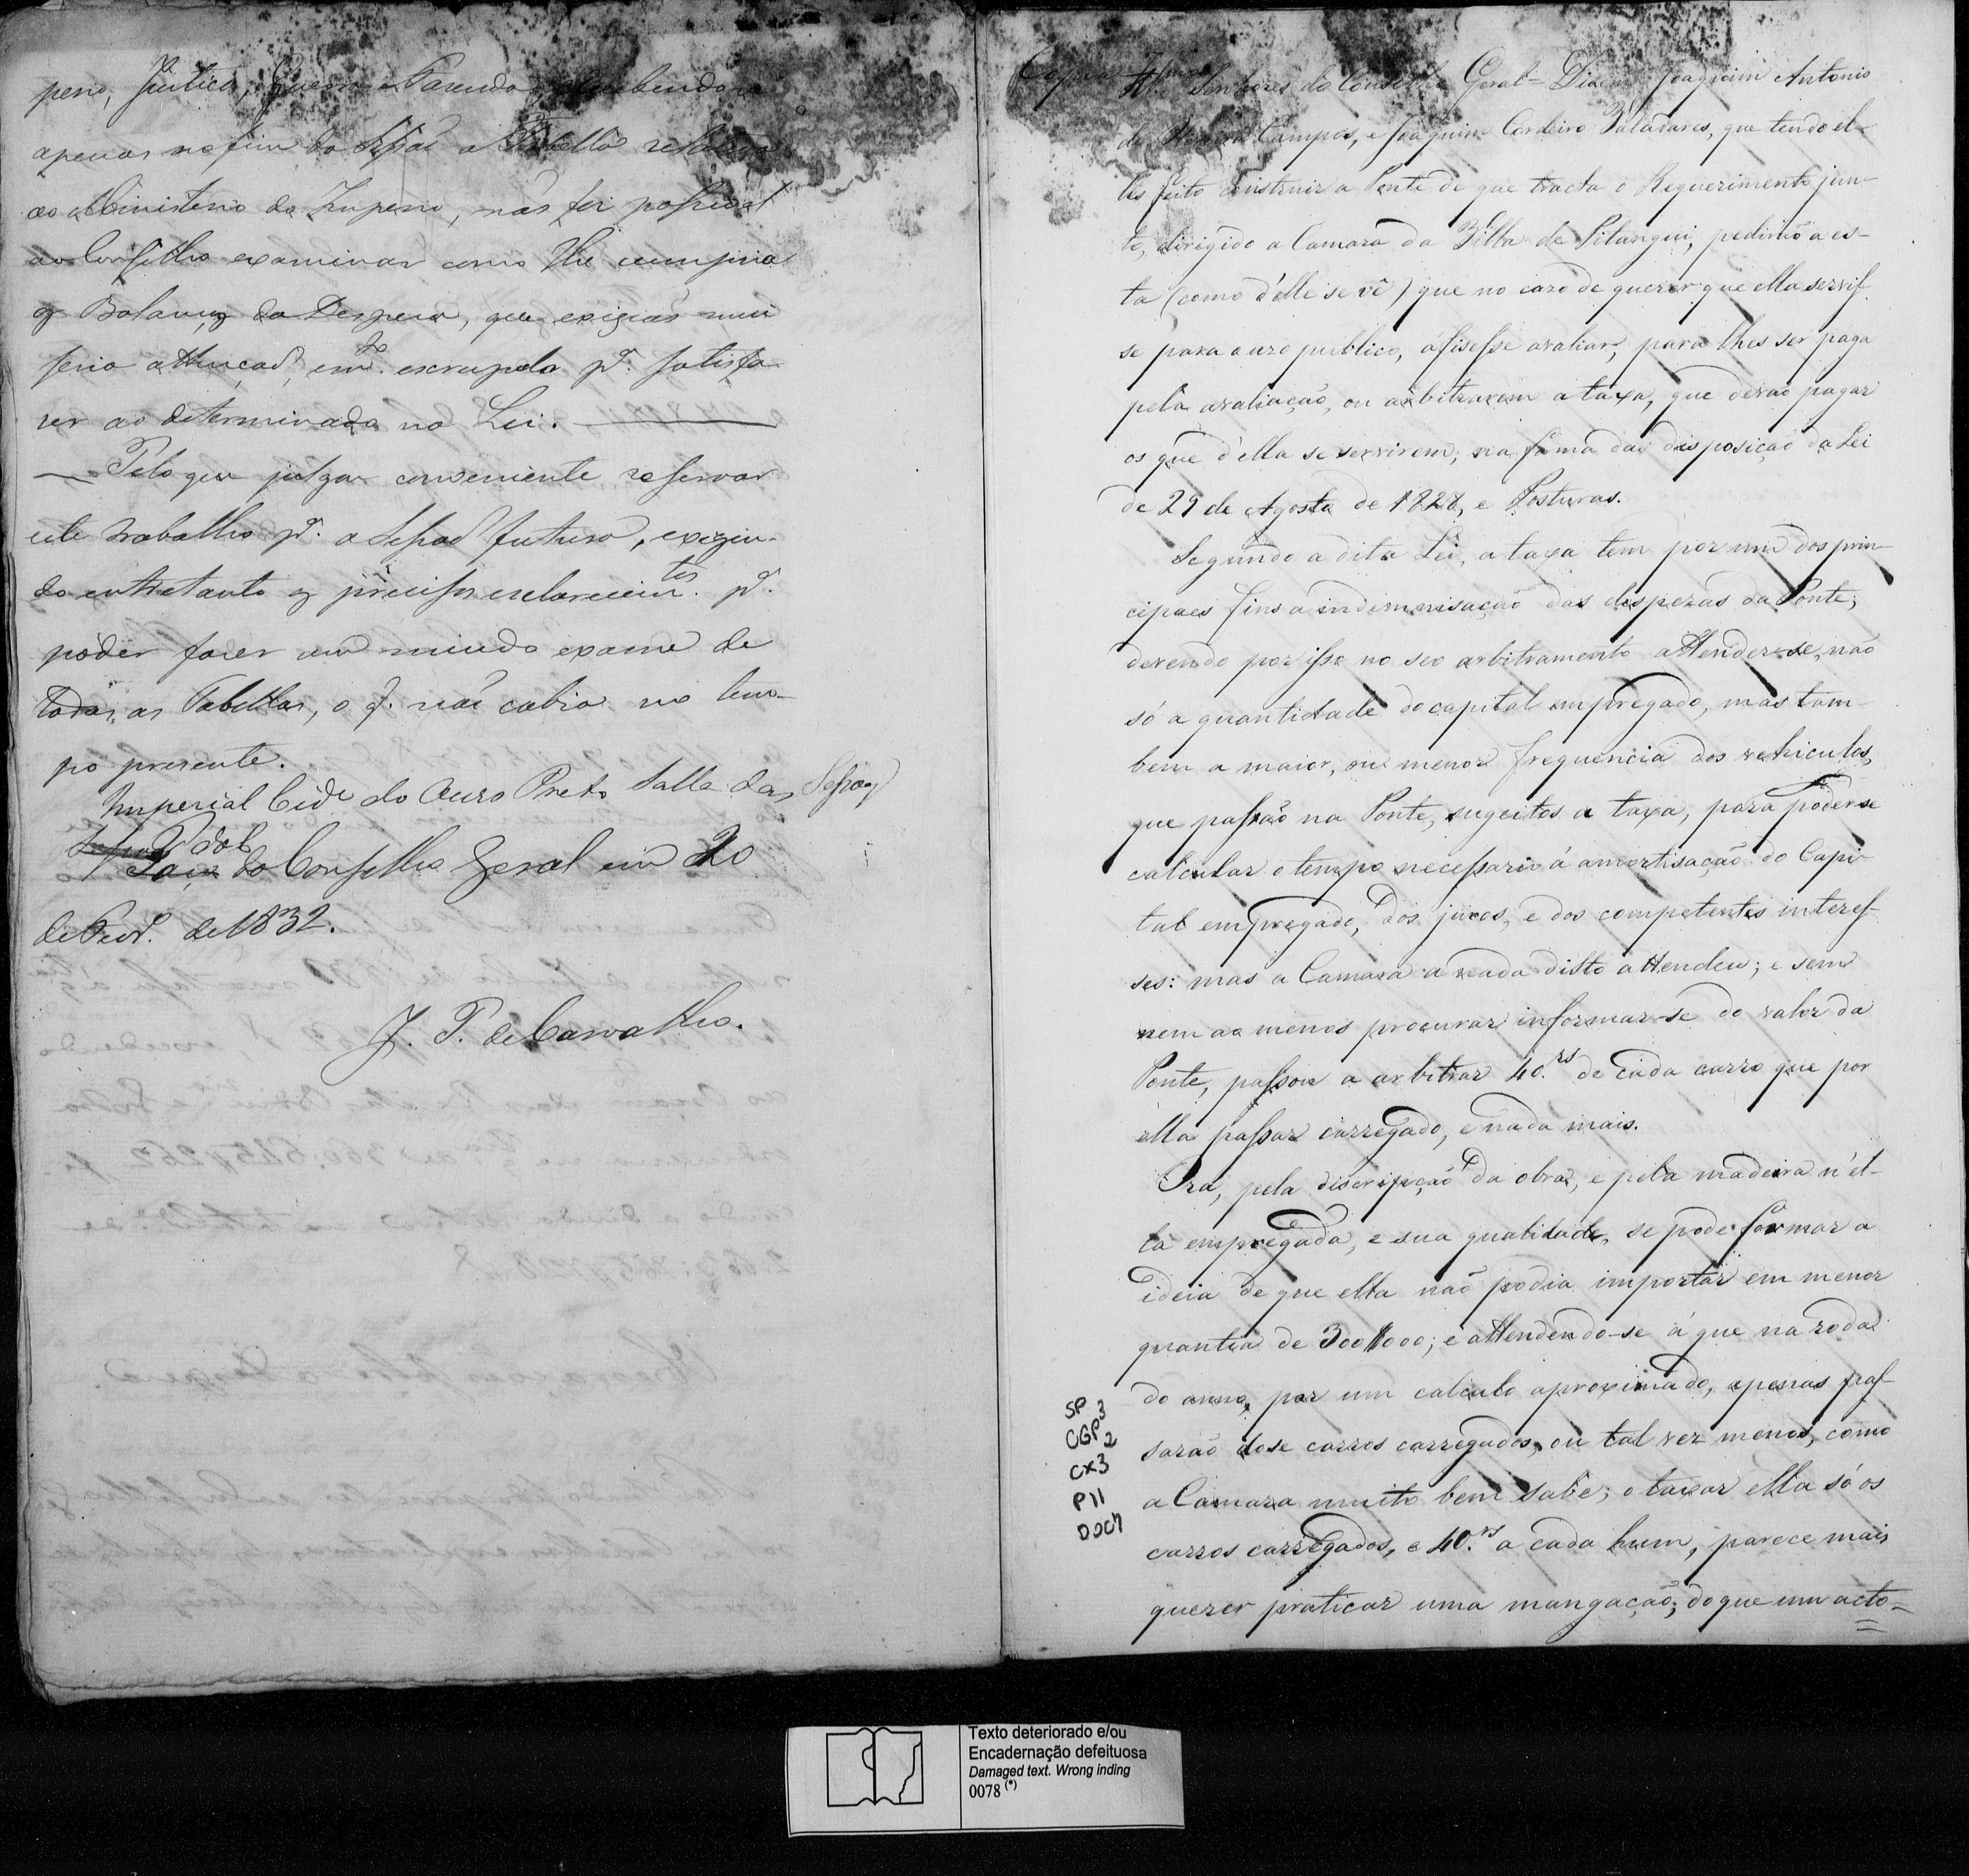 perio, Justiça, Guerra e Fazenda, e recebendo-se
apenas no fim da Sessão a Tabella relativa
ao Ministerio do Imperio, não foi possivel
ao Conselho examinar como lhe cumpria
os Balanços da Despeza, que exigião mui
seria attenção, e m.to escrupulo p.a satisfa-
zer ao determinado na Lei.
Pelo que julga conveniente reservar
este trabalho p.a a Sessão futura, exigin-
do entretanto os precisos esclarecim.tos p.a
poder fazer um miudo exame de
todas as Tabellas, o q. não cabia no tem-
po presente.
Imperial Cid.e do Ouro Preto Salla das Sessoẽs
do Conselho Geral em 20
de Fevr.o de 1832.
J. P. de Carvalho.
Copia Ill.mos Senhores do Conselho Geral = Dizem Joaquim Antonio
de Campos, e Joaquim Cordeiro Valadares, que tendo el-
les feito construir a Ponte de que tracta o Requerimento jun-
to, dirigido a Camara da Villa de Pitangui, pedirão a es-
ta (como d'elle se vê) que no cazo de querer que ella servis-
se para o uzo publico, a fisesse avaliar, para lhes ser paga
pela avaliação, ou arbitrarem a taxa, que devão pagar
os que d'ella se servirem, na forma da disposição da Lei
de 29 de Agosto de 1828, e Posturas.
Segundo a dita Lei, a taxa tem por um dos prin-
cipaes fins a indemnisação das despezas da Ponte;
devendo por isso no seo arbitramento attender-se, não
só a quantidade do capital empregado, mas tam-
bem a maior, ou menor frequencia dos vehiculos,
que passão na Ponte, sugeitos a taxa, para poder-se
calcular o tempo necessario á amortisação do Capi-
tal empregado, dos juros, e dos competentes interes-
ses: mas a Camara a nada disto attendeu; e sem
nem ao menos procurar informar-se do valor da
Ponte, passou a arbitrar 40.rs de cada carro que por
ella passar carregado, e nada mais.
Ora, pela discripção da obra, e pela madeira n'el-
la empregada, e sua qualidade, se pode formar a
ideia de que ella não podia importar em menor
quantia de 300$000; e attendendo-se á que na roda
do anno, por um calculo aproximado, apenas pas-
sarão dose carros carregados, ou tal vez menos, como
a Camara muito bem sabe; o taxar ella só os
carros carregados, e 40.rs a cada hum, parece mais
querer praticar uma mangação, do que um acto =
SP
CGP3
2
CX3
P11
DOC7
Texto deteriorado e/ou
Encadernação defeituosa
Damaged text. Wrong inding
0078 (*)